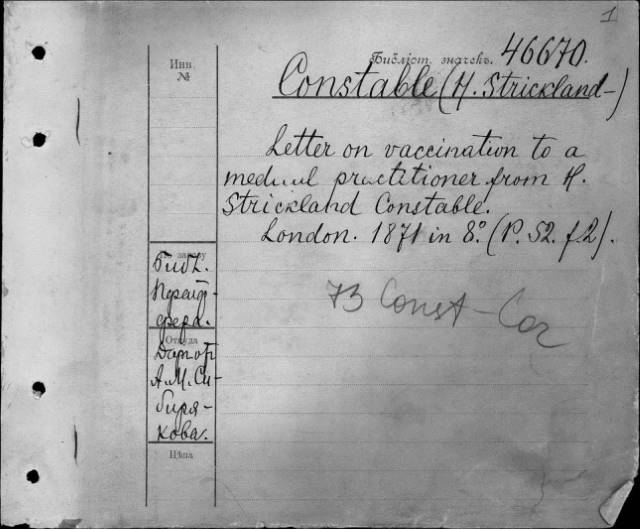 1
Инв.
№
Библіот. значекъ. 46670.
Constable (H. Strickland-)
Letter on vaccination to a
medical practitioner from H.
Strickland Constable.
London. 1871 in 8.° (P. 52. f.2).
73 Const-Cor
Библ.
Прейф-
фера.
Откуда
Дар от
А. М. Си-
биря-
кова.
Цѣна